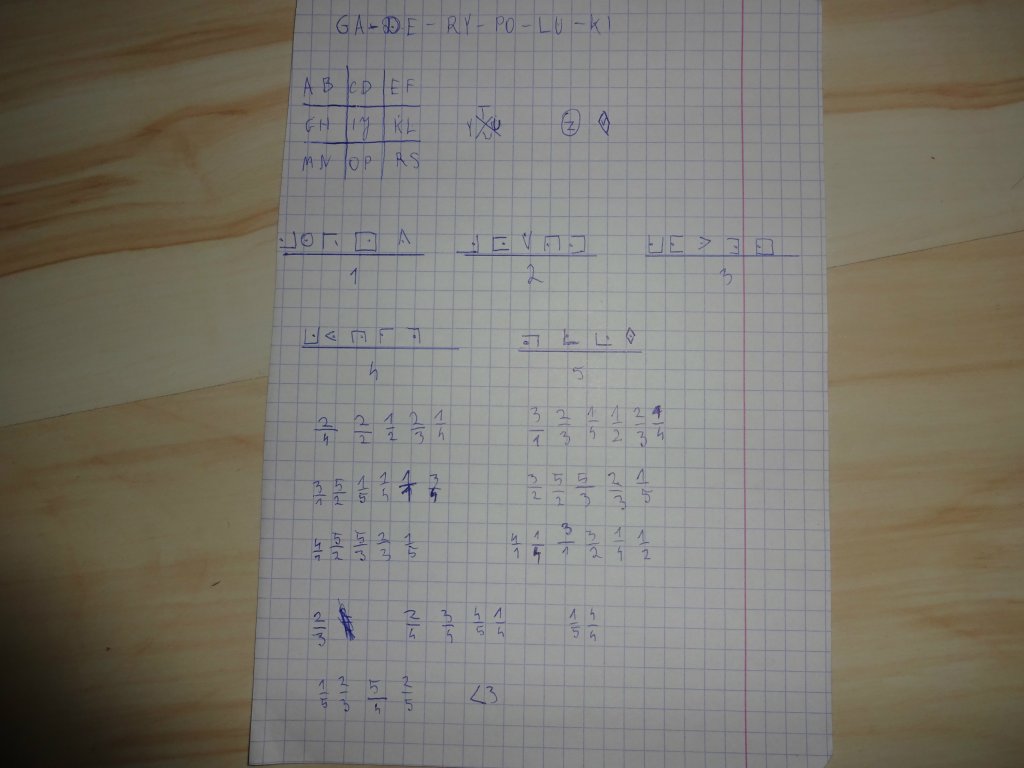 GA-DE-RY-PO-LU-KI
AB CD EF
GH IJ KL
MN OP RS
Z
1 2 3
4 5
2/4 2/2 1/2 2/3 1/4 3/1 2/3 1/4 1/2 2/3 1/4
5/2 1/5 3/2 5/2 5/3 2/3 1/5
5/2 5/3 2/3 1/5 4/1 1/4 3/1 3/2 1/4 1/2
2/3 2/4 3/4 4/5 1/4 1/5 4/4
1/5 2/3 5/4 2/5 <3